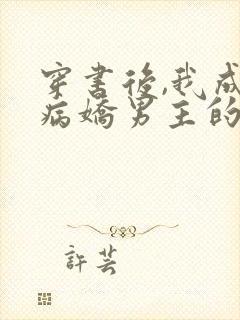 穿书後,我成
病嬌男主的
許芸